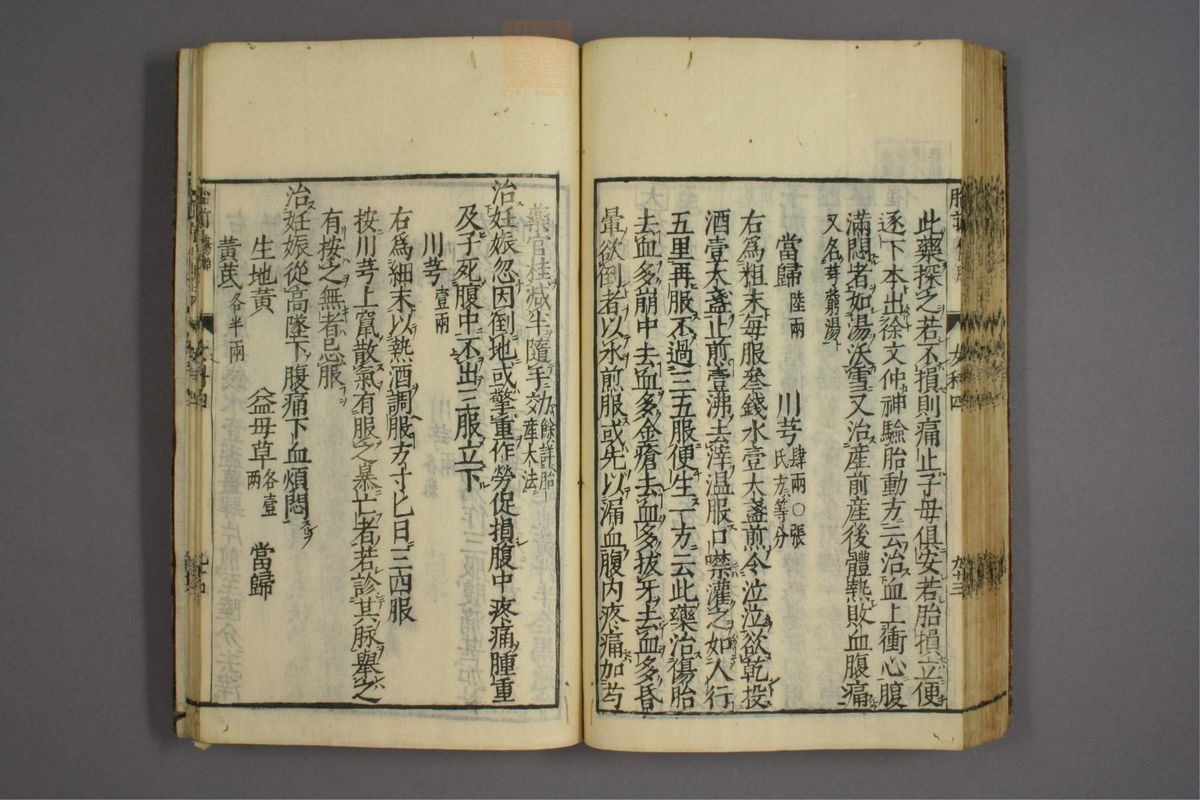 此藥探之若不損則痛止子母俱安若胎損立便
逐下本出徐文仲神驗胎動方云治血上衝心腹
滿悶者如湯沃雪又治產前產後體熱敗血腹痛
又名芎藭湯
當歸陸兩 川芎肆兩〇張氏方等分
右爲粗末每服叁錢水壹大盞煎令泣泣欲乾投
酒壹大盞止煎壹沸去滓温服口噤灌之如人行
五里再服不過三五服便生一方云此藥治傷胎
去血多崩中去血多金瘡去血多拔牙去血多昏
暈欲倒者以水煎服或先以漏血腹内疼痛加芍
藥官桂減半隨手効餘詳胎產大法
治妊娠忽因倒地或擎重作勞促損腹中疼痛腫重
及子死腹中不出三服立下
川芎壹兩
右爲細末以熱酒調服方寸匕日三四服
按川芎上竄散氣有服之暴亡者若診其脉舉之
有按之無者忌服
治妊娠從高墜下腹痛下血煩悶
生地黄 益母草各壹兩 當歸
黄芪各半兩
女科四
九十三